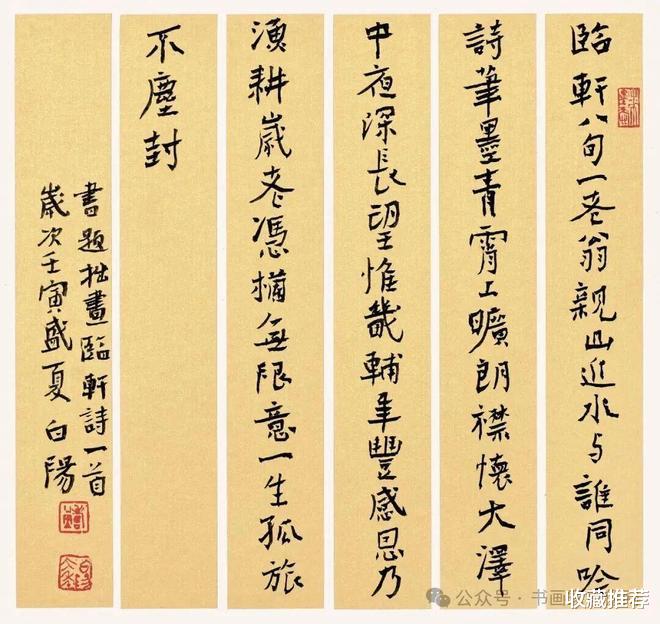 臨軒八旬一老翁親山近水与誰同吟
詩筆墨青霄上曠朗襟懷大澤
中夜深長望惟畿輔年豐感恩乃
漁耕歲老憑欄無限意一生孤旅
不塵封
書題拙畫臨軒詩一首
歲次壬寅盛夏白陽
公众号 · 书画
收藏推荐